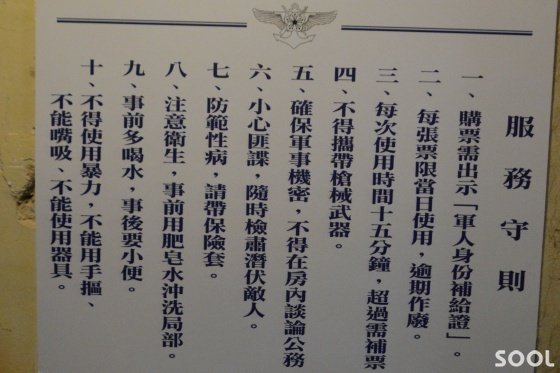 服務守則
一、購票需出示「軍人身份補給證」。
二、每張票限當日使用，逾期作廢。
三、每次使用時間十五分鐘，超過需補票
四、不得攜帶槍械武器。
五、確保軍事機密，不得在房內談論公務
六、小心匪諜，隨時檢肅潛伏敵人。
七、防範性病，請帶保險套。
八、注意衛生，事前用肥皂水沖洗局部。
九、事前多喝水，事後要小便。
十、不得使用暴力，不能用手摳、
不能嘴吸、不能使用器具。
SOOL